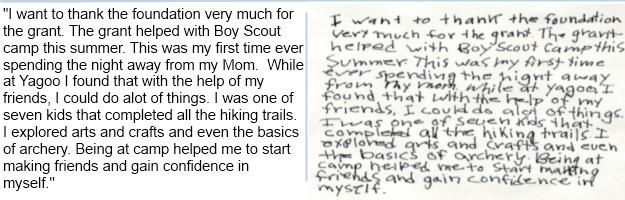 "I want to thank the foundation very much for
the grant. The grant helped with Boy Scout
camp this summer. This was my first time ever
spending the night away from my Mom.  While
at Yagoo I found that with the help of my
friends, I could do alot of things. I was one of
seven kids that completed all the hiking trails.
I explored arts and crafts and even the basics
of archery. Being at camp helped me to start
making friends and gain confidence in
myself."
I want to thank the foundation
very much for the grant. The grant
helped with Boy Scout Camp this
Summer This was my first time
ever spending the night away
from my mom. While at yagoo, I
found that with the help of my
friends, I could do alot of things.
I was one of seven kids that
completed all the hiking trails. I
explored arts and crafts and even
the basics of archery. Being at
camp helped me to start making
friends and gain confidence in
myself.